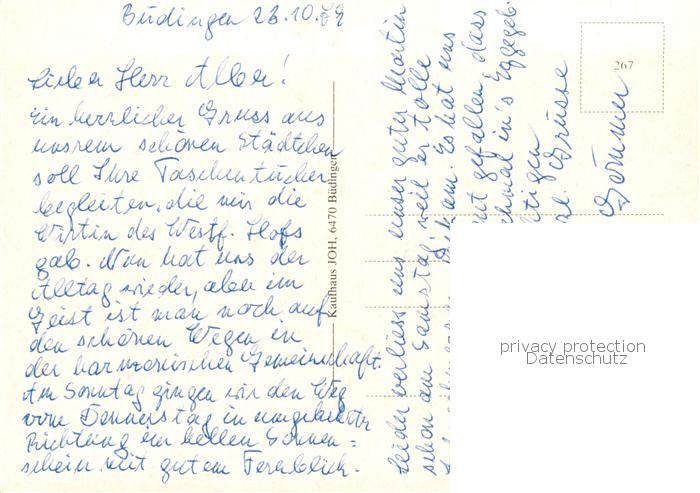 Büdingen 23.10.79
Lieber Herr Alber!
Ein herzlicher Gruss aus
unsrem schönen Städtchen
soll Ihre Taschentücher
begleiten, die mir die
Wirtin des Westf. Hofs
gab. Nun hat uns der
Alltag wieder, aber im
Geist ist man noch auf
den schönen Wegen in
der harmonischen Gemeinschaft.
Am Sonntag gingen wir den Weg
vom Donnerstag in umgekehrter
Richtung im hellen Sonnen=
schein mit gutem Fernblick.
Leider verliess uns unser guter Martin
schon am Samstag, weil er tolle
bekam. Es hat uns
gut gefallen, dass
in's Eggegeb.
Grüsse
Kaufhaus JOH, 6470 Büdingen
267
privacy protection
Datenschutz